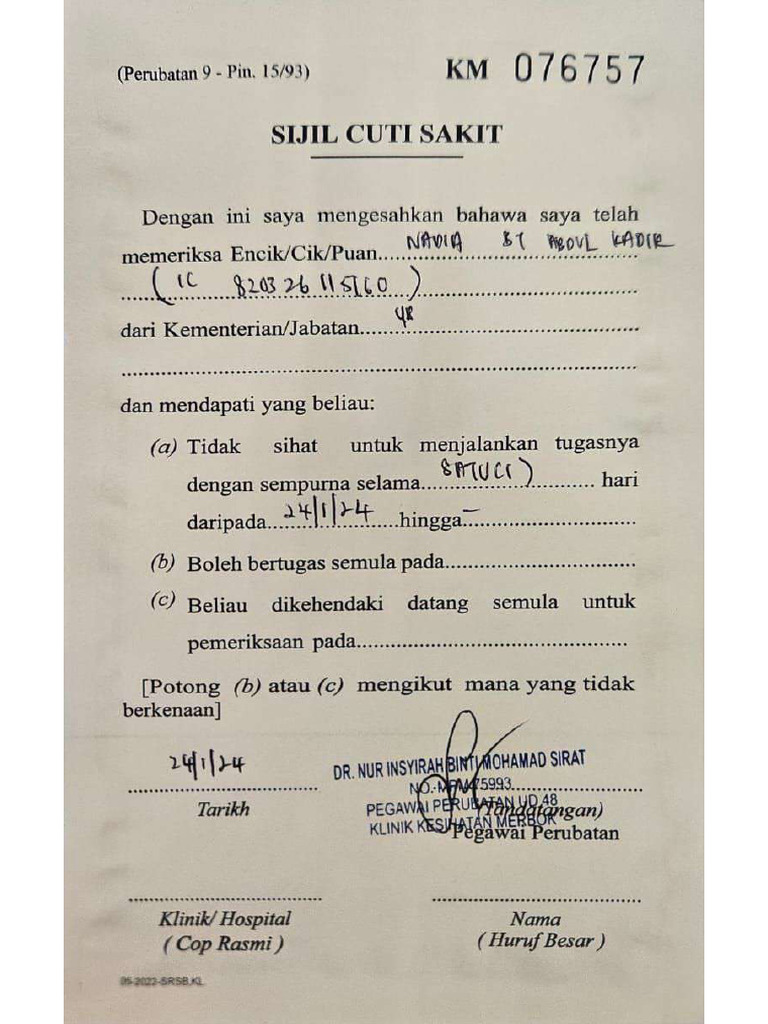 (Perubatan 9 - Pin. 15/93) KM 076757
SIJIL CUTI SAKIT
Dengan ini saya mengesahkan bahawa saya telah
memeriksa Encik/Cik/Puan NADIA BT ABDUL KADIR
(IC 820326115160)
dari Kementerian/Jabatan
dan mendapati yang beliau:
(a) Tidak sihat untuk menjalankan tugasnya
dengan sempurna selama SATU(1) hari
daripada 24/1/24 hingga –
(b) Boleh bertugas semula pada
(c) Beliau dikehendaki datang semula untuk
pemeriksaan pada
[Potong (b) atau (c) mengikut mana yang tidak
berkenaan]
24/1/24
Tarikh
DR. NUR INSYIRAH BINTI MOHAMAD SIRAT
NO.-MPM 75993
PEGAWAI PERUBATAN UD 48
KLINIK KESIHATAN MERBOK
(Tandatangan)
Pegawai Perubatan
Klinik/ Hospital
( Cop Rasmi )
Nama
( Huruf Besar )
05-2022-SRSB.KL